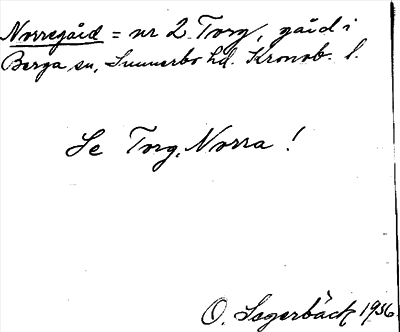 Norregård = nr 2 Torg, gård i
Berga sn, Sunnerbo hd. Kronob. l.
Se Torg, Norra !
O. Sagerbäck 1936